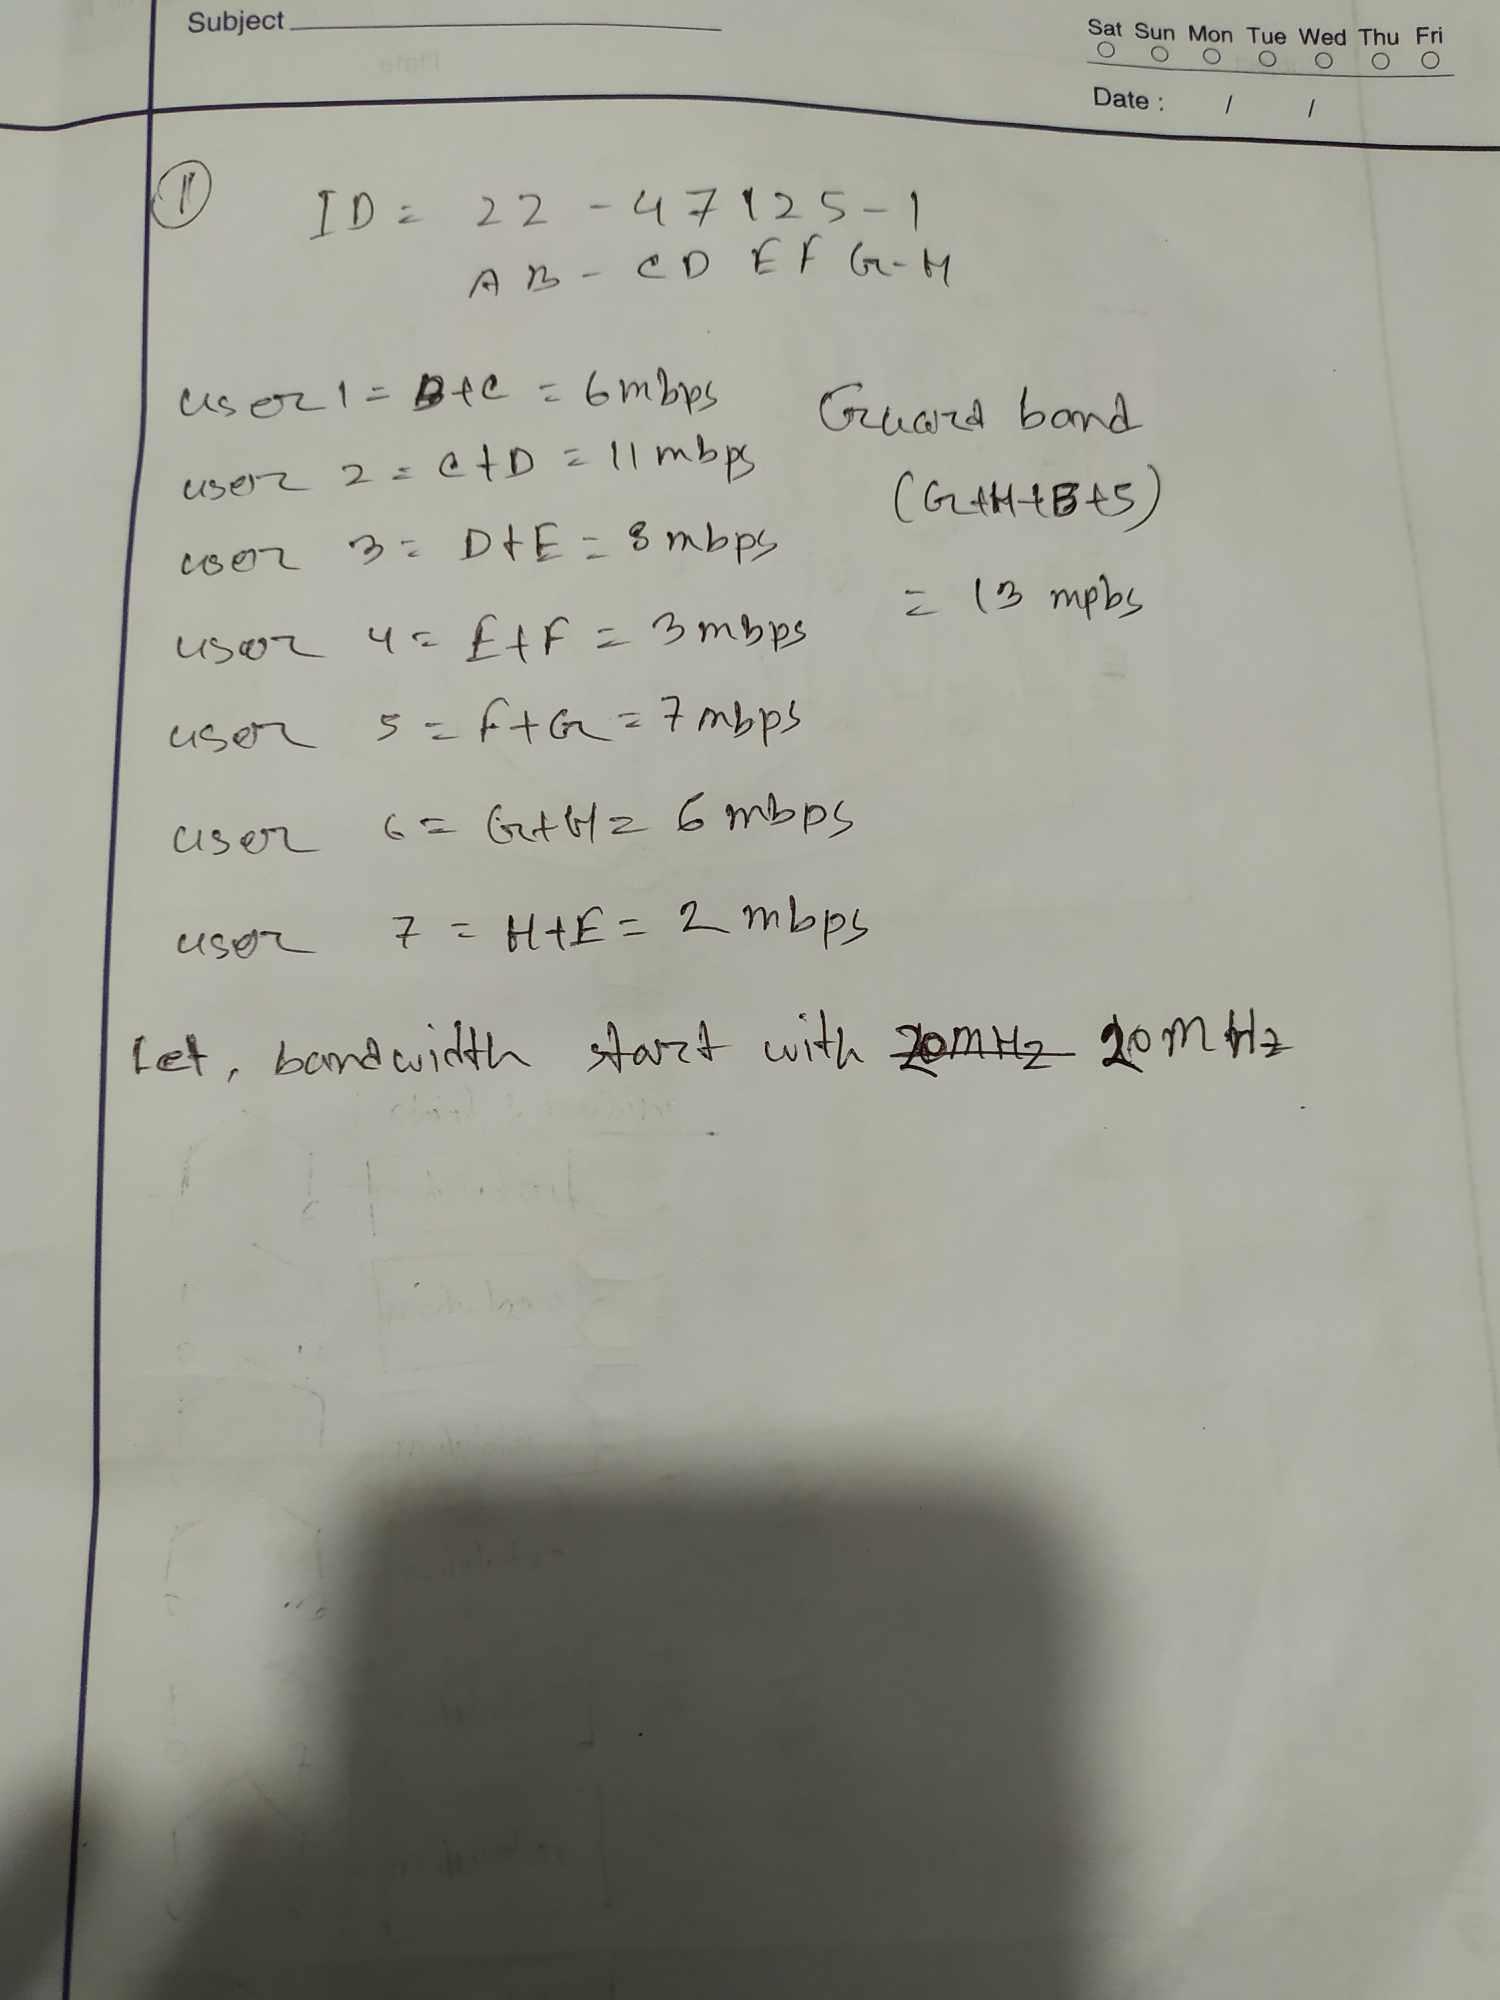 Subject
Sat Sun Mon Tue Wed Thu Fri
Date : / /
1 ID = 22 - 47125-1
AB - CD EF G-H
user 1 = B+C = 6 mbps
user 2 = C+D = 11 mbps
user 3 = D+E = 8 mbps
user 4 = E+F = 3 mbps
user 5 = F+G = 7 mbps
user 6 = G+H = 6 mbps
user 7 = H+E = 2 mbps
Guard band
(G+H+B+5)
= 13 mpbs
Let, bandwidth start with 20MHz 20MHz